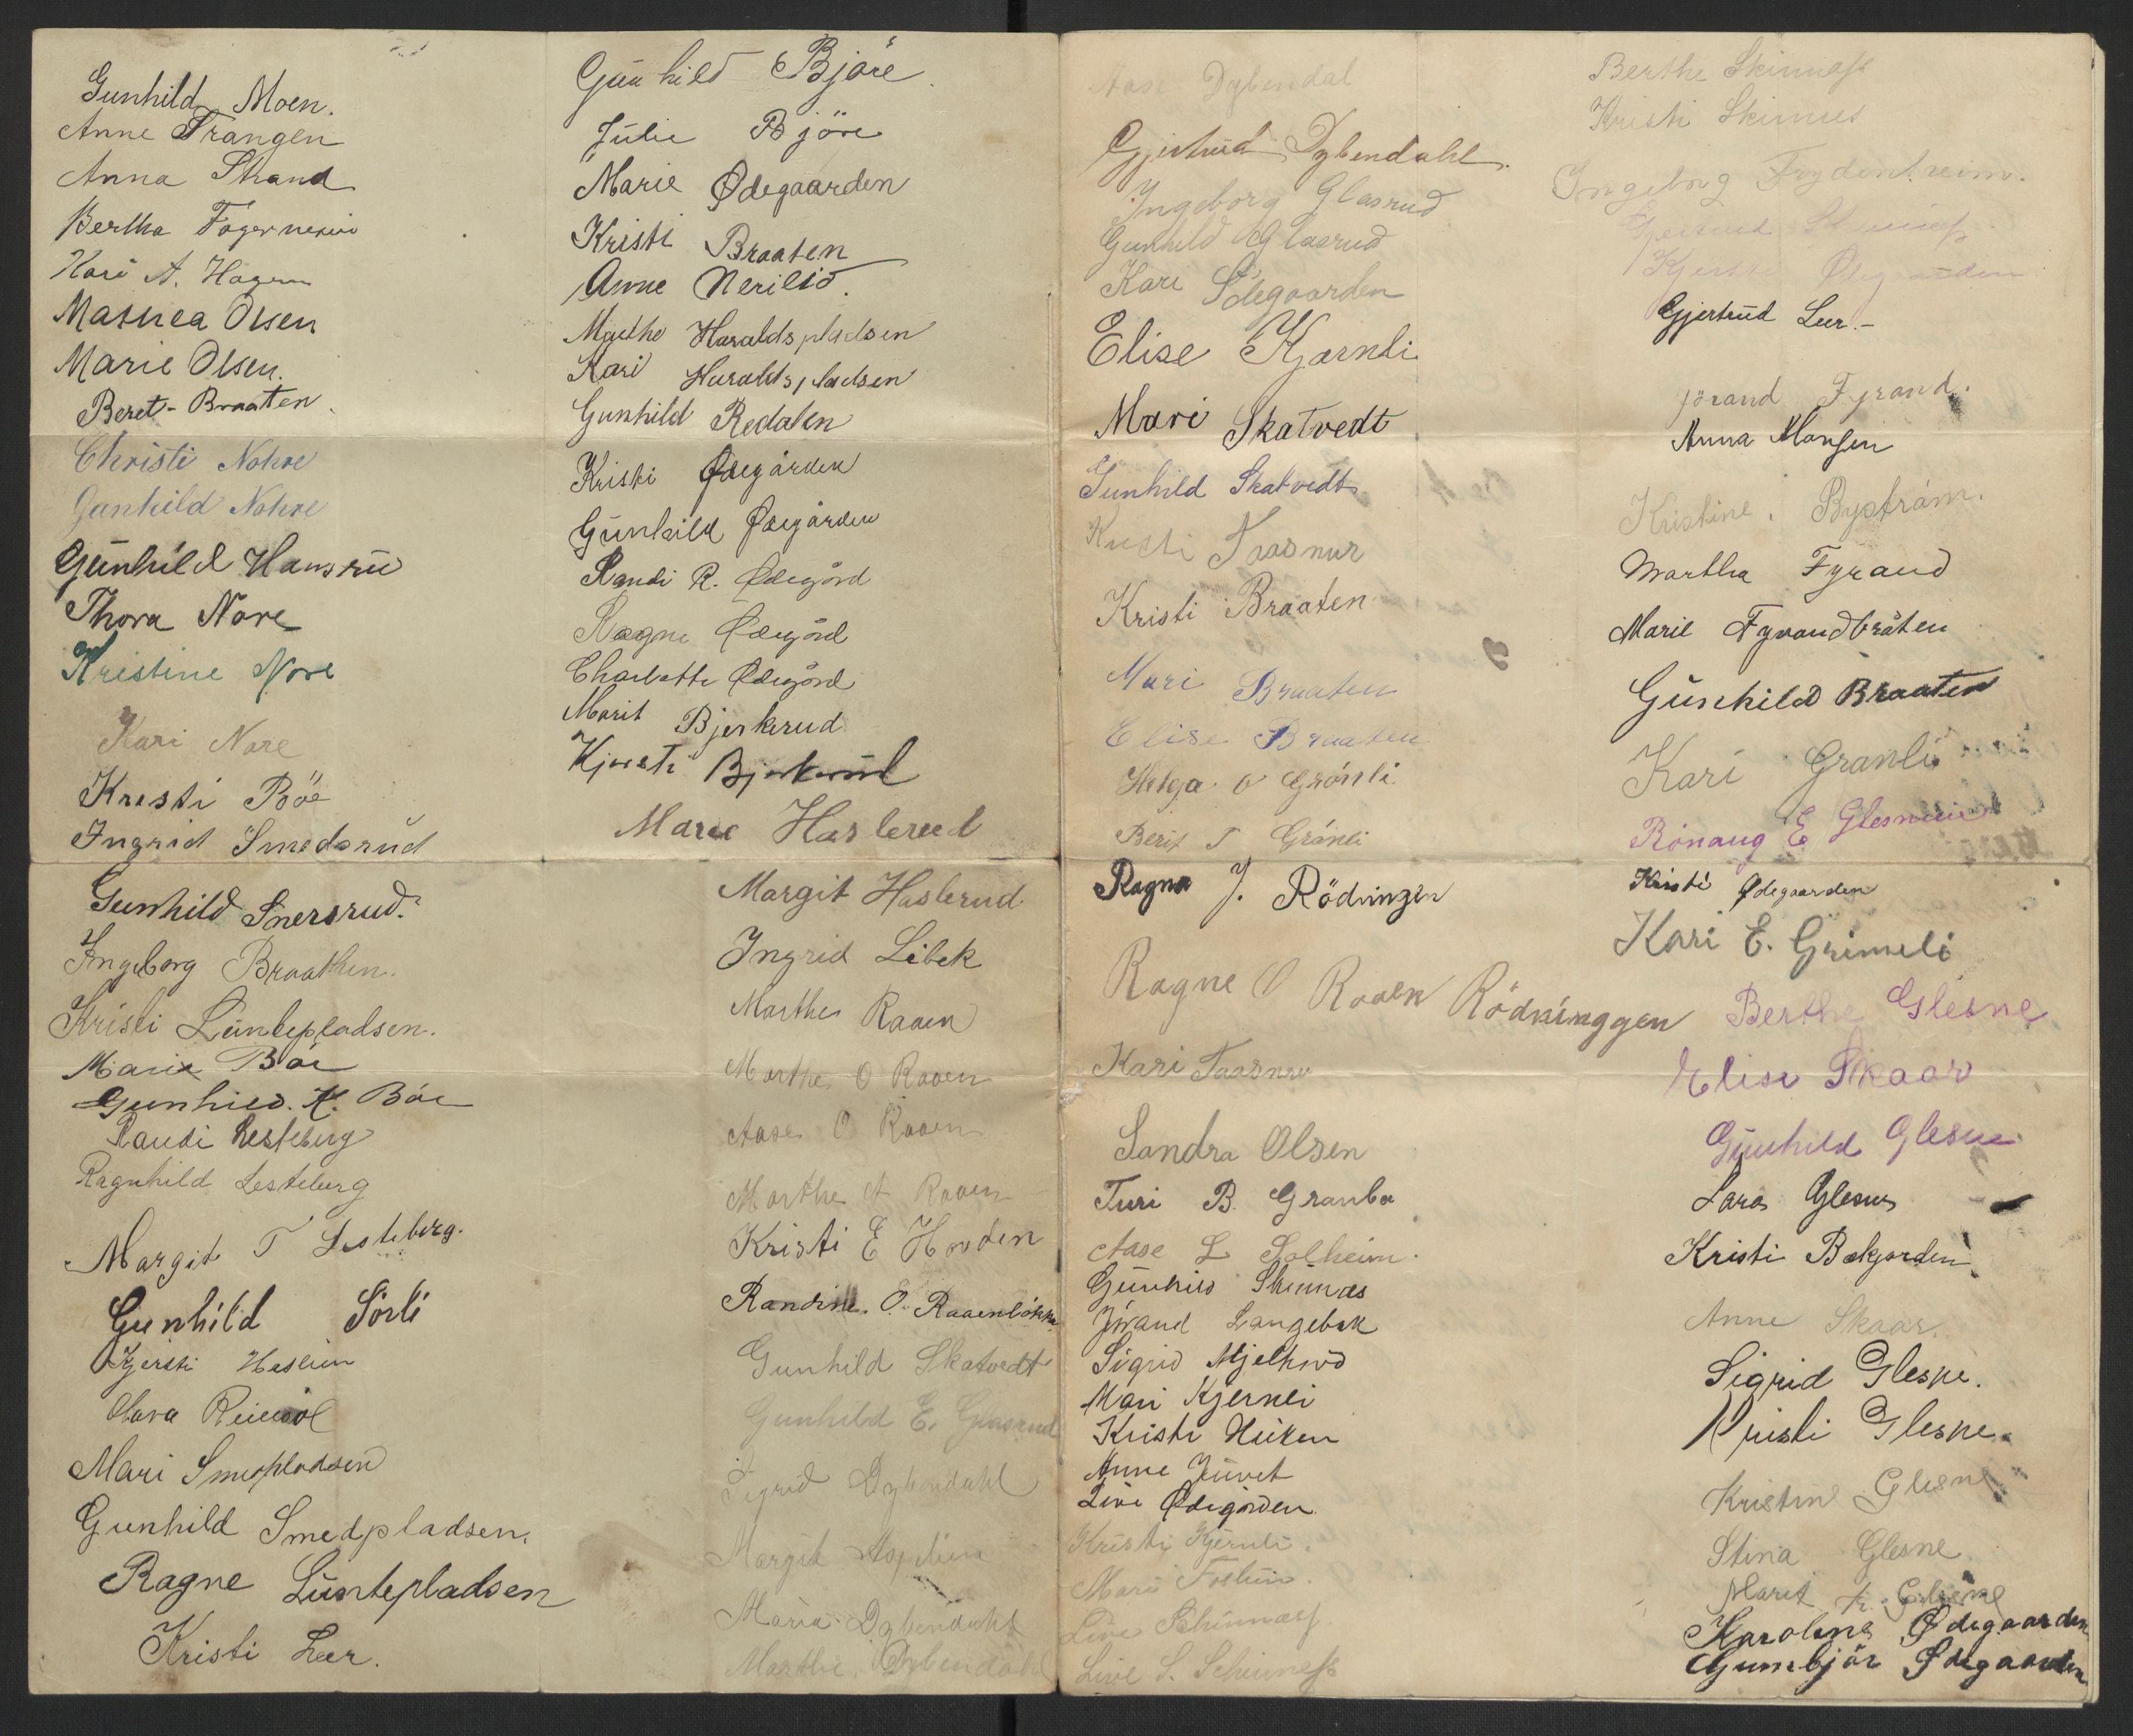 Gunhild Moen.
Anne Trangen
Anna Strand
Bertha Fagernesin
Kari A. Hagen
Masnea Olsen
Marie Olsen.
Beret-Braaten
Christi Nohre
Gunhild Nohre
Gunhild Hamsru
Thora Nore
Kristine Nore
Kari Nore
Kristi Böe
Ingrid Smedsrud
Gunhild Snersrud.
Ingeborg Braathen.
Kristi Luntepladsen.
Marie Böe
Gunhild. K. Böe
Randi Lesteberg
Ragnhild Lesteberg
Margit T Lesteberg.
Gunhild Sörli
Kjersti Haslein
Mari Smepladsen
Gunhild Smedpladsen.
Ragne Luntepladsen
Kristi Leer.
Gunhild Björe
Julie Björe
Marie Ødegaarden
Kristi Braaten
Anne Nerilid.
Marthe Haraldspladsen
Kari Haraldspladsen
Gunhild Redalen
Kristi Ødegården
Gunhild Ødegården
Randi R. Ødegård
Ragne Ødegård
Charlotte Ødegård
Marit Bjerkerud
Kjersti Bjerkerud
Marie Haslerud
Margit Haslerud
Ingrid Libek
Marthe Raaen
Marthe O Raaen
Aase O Raaen
Marthe A Raaen
Kristi E Hovden
Randine. O. Raaenlökka
Gunhild Skatvedt
Gunhild E. Glasrud
Sigrid Dybendahl
Margit Asplien
Maria Dybendahl
Marthe. Dybendahl
Aase Dybendal
Gjertrud Dybendahl.
Ingeborg Glasrud
Gunhild Glasrud
Kari Ödegaarden
Elise Kjærnli
Mari Skatvedt
Gunhild Skatvedt
Kristi Taasnur
Kristi Braaten
Mari Braaten
Elise Braaten
Helga O Grönli
Berit T Grönli
Ragna J. Rödningen
Ragne O Raaen Rödninggen
Kari Taasnur
Sandra Olsen
Turi B. Granbo
Aase L Solheim.
Gunhild Skinnes
Jörand Langebek
Sigrid Mjelhus
Mari Kjernli
Kristi Heiken
Anne Juvet
Live Ødegården
Kristi Kjernli.
Mari Foslien.
Live Schinness
Live S. Schinness
Berthe Skinness
Kristi Skinnes
Ingeborg Frydenheim.
Gjertrud Skinness
Kjersti Ødegaarden
Gjertrud Leer.-
Jörand Fyrand.
Anna Monsen
Kristine. Byström.
Martha Fyrand
Marie Fyrandbråten
Gunhild Braaten
Kari Granli
Rönaug E Glesneeie
Kristi Ødegaarden
Kari E. Grimeli
Berthe Glesne
Elise Skaar
Gunhild Glesne
Lara Glesne
Kristi Bækjorden
Anne Skaar.
Sigrid Glesne.
Kristi Glesne.
Kristine Glesne
Stina Glesne
Marit K. Glesne
Karoline Ødegaarden
Gunbjör Ødegaarden